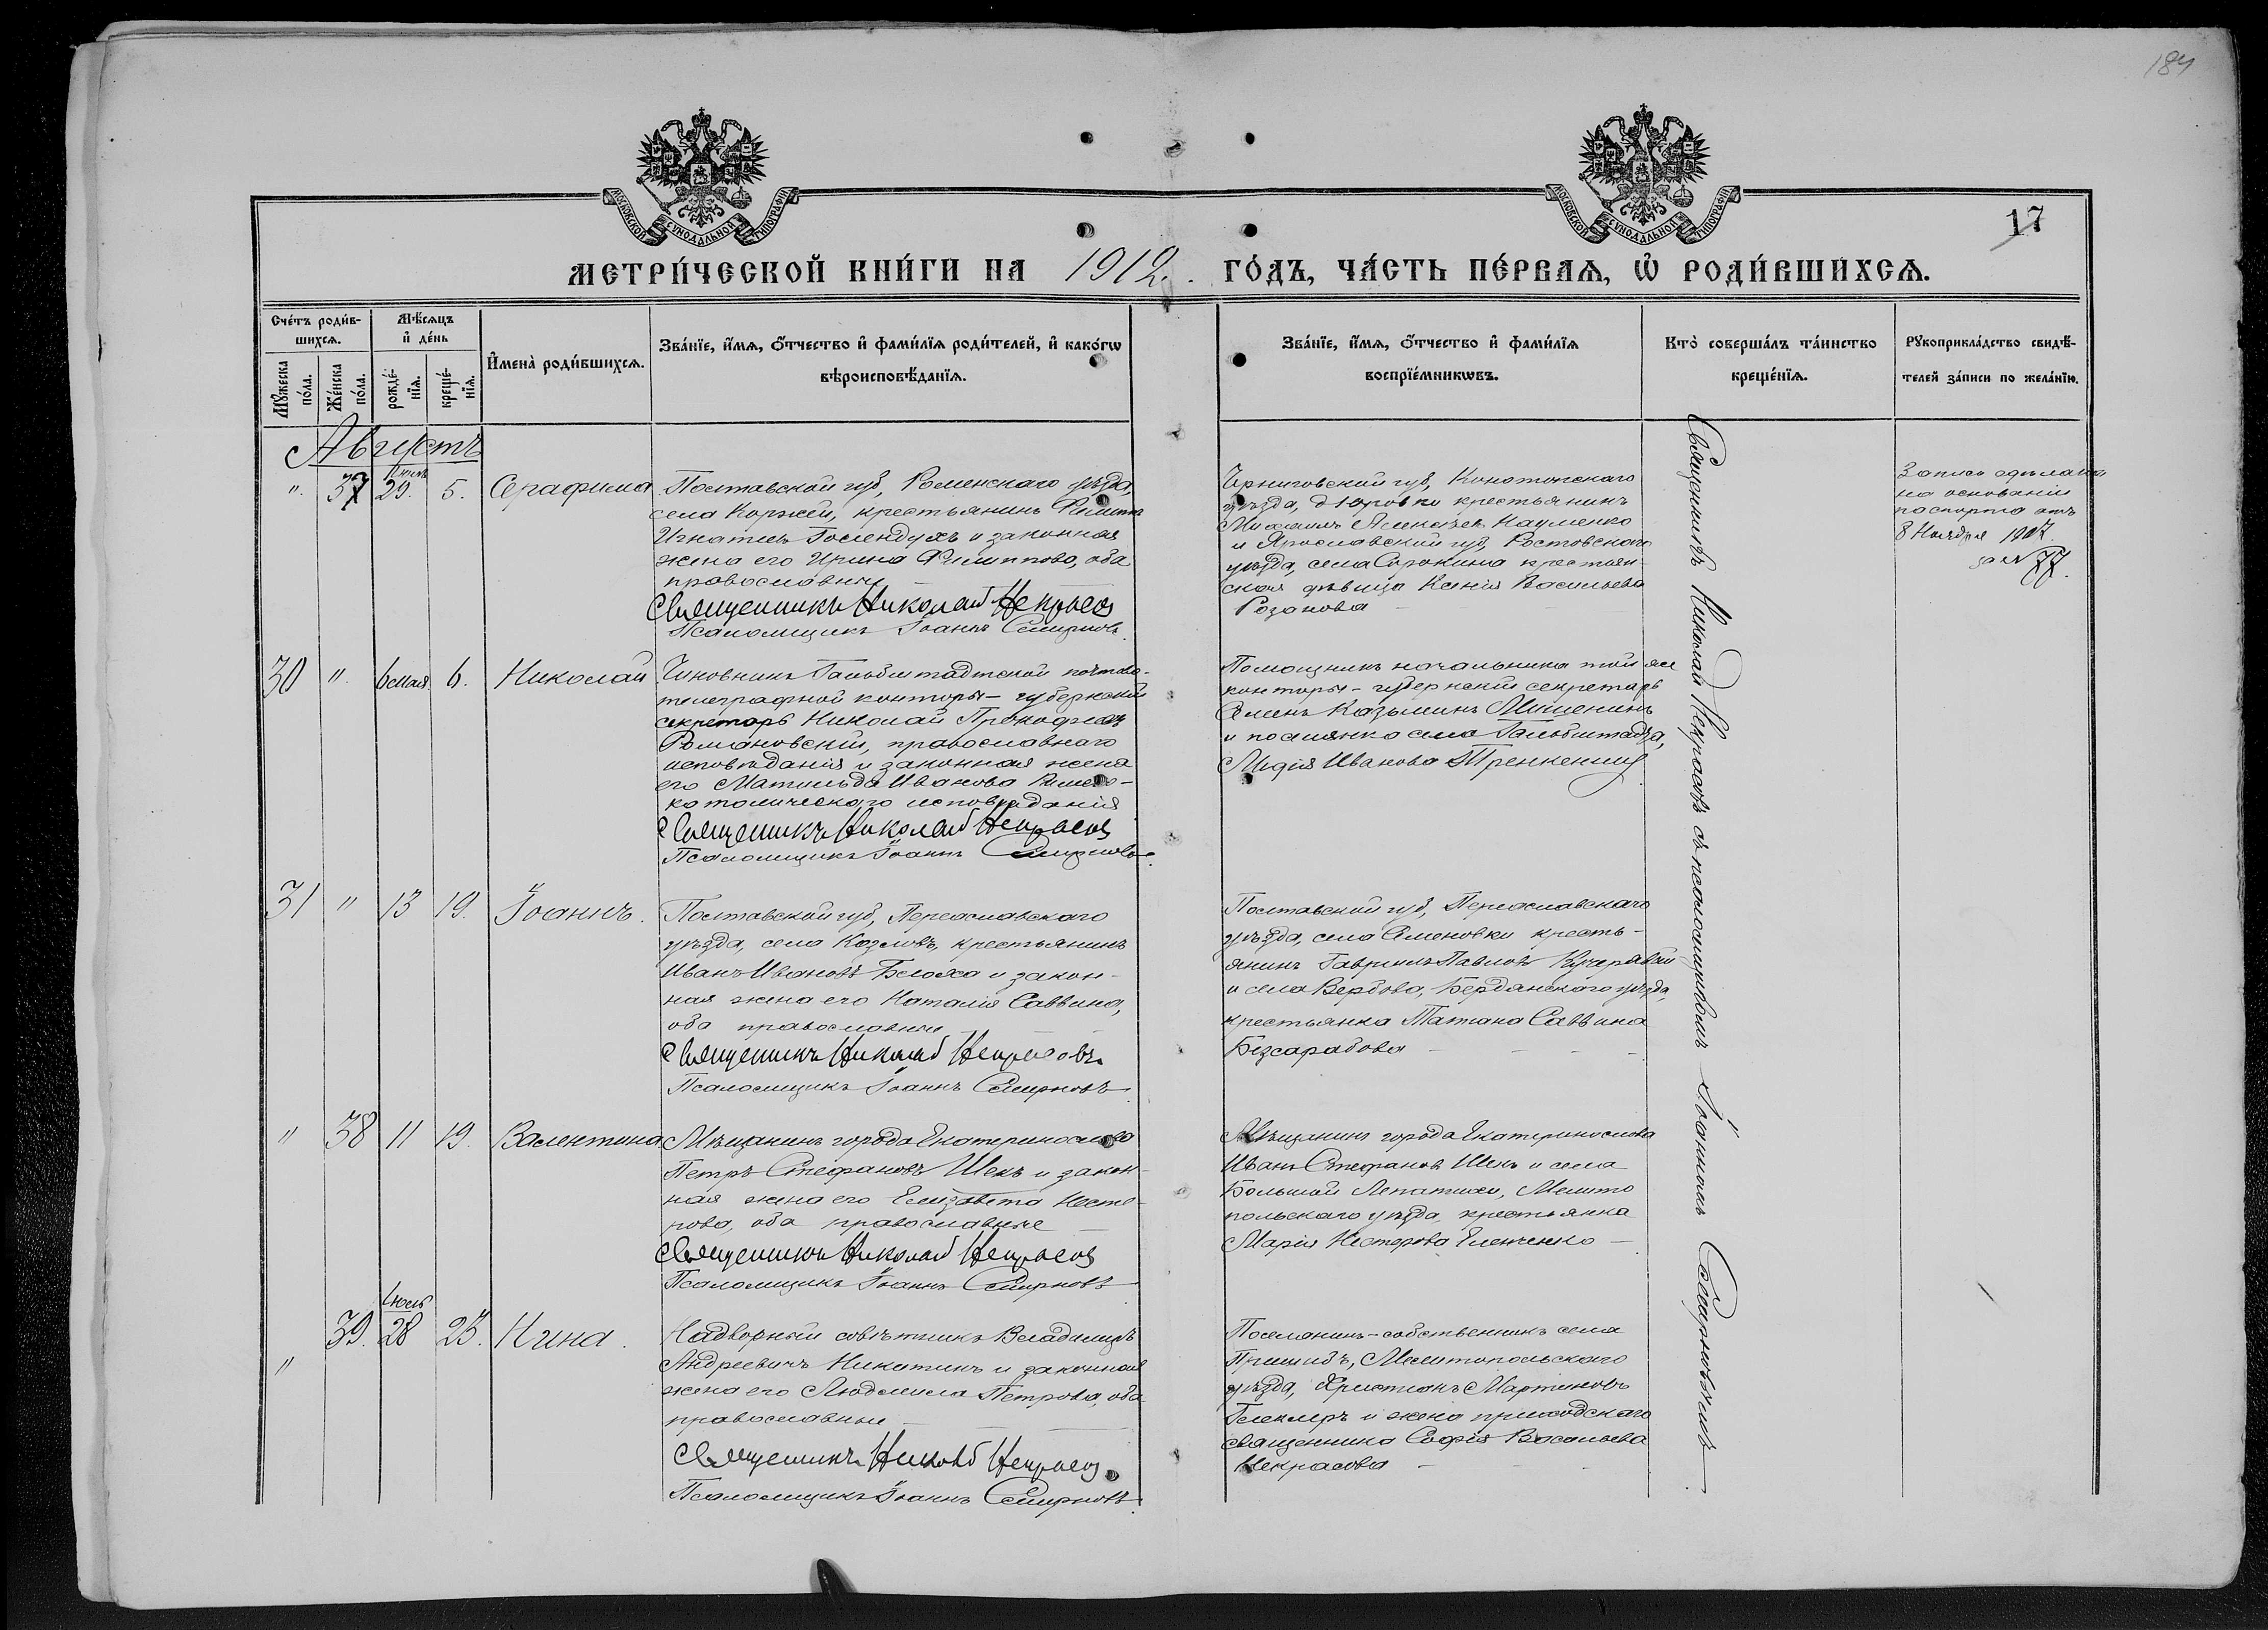 184
17
МОСКОВСКОЙ СѴНОДАЛЬНОЙ ТИПОГРАФІИ
МОСКОВСКОЙ СѴНОДАЛЬНОЙ ТИПОГРАФІИ
МЕТРИ́ЧЕСКОЙ КНИ́ГИ НА 1912. ГО́ДЪ, ЧА́СТЬ ПЕ́РВАѦ, Ѽ РОДИ́ВШИХСѦ.
Сче́тъ роди́в-
шихсѧ.
Мꙋ́жеска по́ла.
Же́нска по́ла.
Мѣ́сѧцъ
и҆ де́нь
рожде́-
нїѧ.
креще́-
нїѧ.
И҆мена̀ роди́вшихсѧ.
Зва́нїе, и҆́мѧ, о҆́тчество и҆ фами́лїѧ роди́телей, и҆ како́гѡ
вѣроисповѣ́данїѧ.
Зва́нїе, и҆́мѧ, о҆́тчество и҆ фами́лїѧ
воспрїе́мникѡвъ.
Кто̀ соверша́лъ та́инство
креще́нїѧ.
Рꙋкоприкла́дство свидѣ́-
телей за́писи по жела́нїю.
Августъ
" 37 29. 5. Серафима
Полтавской губ, Роменскаго уѣзда,
села Коржей, крестьянинъ Филиппъ
Игнатьевъ и законная
жена его Ирина Филиппова, оба
православные
Священникъ Николай Некрасовъ
Псаломщикъ Іоаннъ Смирновъ.
Черниговской губ, Конотопскаго
уѣзда, д Юровки крестьянинъ
Михаилъ Алексѣевъ Науменко
и Ярославской губ, Ростовскаго
уѣзда, села Сорокина крестьян-
ская дѣвица Ксенія Васильева
Розанова
Запись сдѣлана
на основаніи
паспорта отъ
8 Ноября 1907.
за № 77.
30 " 6 мая 6. Николай
Чиновникъ Гальбштадтской почтово-
телеграфной конторы – губернскій
секретарь Николай Прокофьевъ
Романовскій, православнаго
исповѣданія и законная жена
его Матильда Иванова Римско-
католическаго исповѣданія
Священникъ Николай Некрасовъ
Псаломщикъ Іоаннъ Смирновъ.
Помощникъ начальника той же
конторы – губернскій секретарь
Семенъ Казьминъ Мищенинъ
и поселянка села Гальбштадта,
Лидія Иванова
31 " 13 19. Іоаннъ.
Полтавской губ, Переяславскаго
уѣзда, села Козловъ, крестьянинъ
Иванъ Ивановъ и закон-
ная жена его Наталія Саввина,
оба православные
Священникъ Николай Некрасовъ
Псаломщикъ Іоаннъ Смирновъ.
Полтавской губ, Переяславскаго
уѣзда, села Семеновки кресть-
янинъ Гавриилъ Павловъ Кучерявый
и села Вербова, Бердянскаго уѣзда,
крестьянка Татiана Саввина
Безсарабова
" 38 11 19. Валентина
Мѣщанинъ города Екатеринослава
Петръ Стефановъ Шекъ и закон-
ная жена его Елизавета Несте-
рова, оба православные
Священникъ Николай Некрасовъ
Псаломщикъ Іоаннъ Смирновъ
Мѣщанинъ города Екатеринослава
Иванъ Стефановъ Шекъ и села
Большой Лепатихи, Мелито
польскаго уѣзда, крестьянка
Марія Нестерова
Іюль
" 39. 28 23. Нина.
Надворный совѣтникъ Владимиръ
Андреевичъ Никитинъ и законная
жена его Людмила Петрова, оба
православные
Священникъ Николай Некрасовъ
Псаломщикъ Іоаннъ Смирновъ.
Поселянинъ – собственникъ села
Пришибъ, Мелитопольскаго
уѣзда, Христіанъ Мартиновъ
и жена приходскаго
священника Софія Васильева
Некрасова
Священникъ Николай Некрасовъ съ псаломщикомъ Іоанномъ Смирновымъ